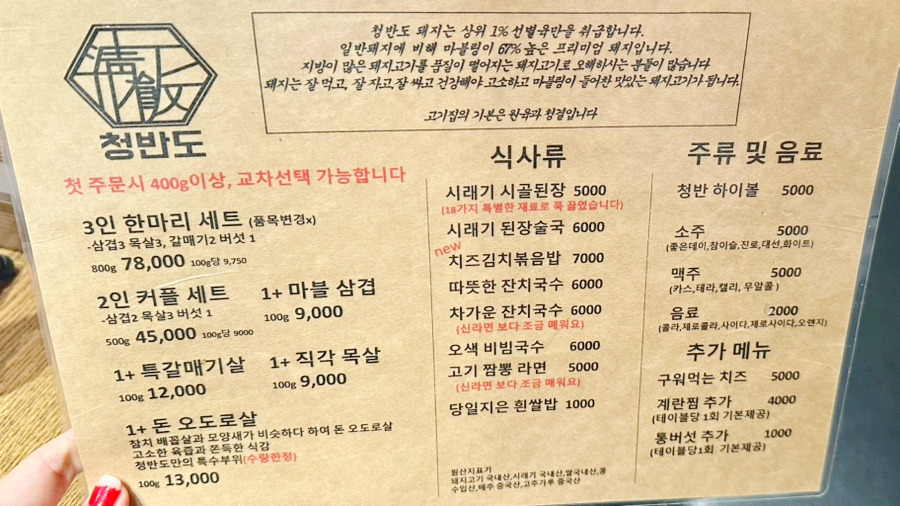 청반도
청반도 돼지는 상위 1% 선별육만을 취급합니다.
일반돼지에 비해 마블링이 67% 높은 프리미엄 돼지입니다.
지방이 많은 돼지고기를 품질이 떨어지는 돼지고기로 오해하시는 분들이 많습니다
돼지는 잘 먹고, 잘 자고, 잘 싸고 건강해야 고소하고 마블링이 들어찬 맛있는 돼지고기가 됩니다.
고기집의 기본은 원육과 청결입니다
첫 주문시 400g이상, 교차선택 가능합니다
3인 한마리 세트 (품목변경x)
-삼겹3 목살3, 갈매기2 버섯 1
800g 78,000 100g당 9,750
2인 커플 세트
-삼겹2 목살3 버섯 1
500g 45,000 100g당 9000
1+ 마블 삼겹
100g 9,000
1+ 특갈매기살
100g 12,000
1+ 직각 목살
100g 9,000
1+ 돈 오도로살
참치 배꼽살과 모양새가 비슷하다 하여 돈 오도로살
고소한 육즙과 쫀득한 식감
청반도만의 특수부위(수량한정)
100g 13,000
식사류
시래기 시골된장 5000
(18가지 특별한 재료로 푹 끓였습니다)
시래기 된장술국 6000
new
치즈김치볶음밥 7000
따뜻한 잔치국수 6000
차가운 잔치국수 6000
(신라면 보다 조금 매워요)
오색 비빔국수 6000
고기 짬뽕 라면 5000
(신라면 보다 조금 매워요)
당일지은 흰쌀밥 1000
원산지표기
돼지고기 국내산,시래기 국내산,쌀국내산,콩
수입산,배추 중국산,고추가루 중국산
주류 및 음료
청반 하이볼 5000
소주 5000
(좋은데이,참이슬,진로,대선,화이트)
맥주 5000
(카스,테라,캘리, 무알콜)
음료 2000
(콜라,제로콜라,사이다,제로사이다,오렌지)
추가 메뉴
구워먹는 치즈 5000
계란찜 추가 4000
(테이블당 1회 기본제공)
통버섯 추가 1000
(테이블당1회 기본제공)